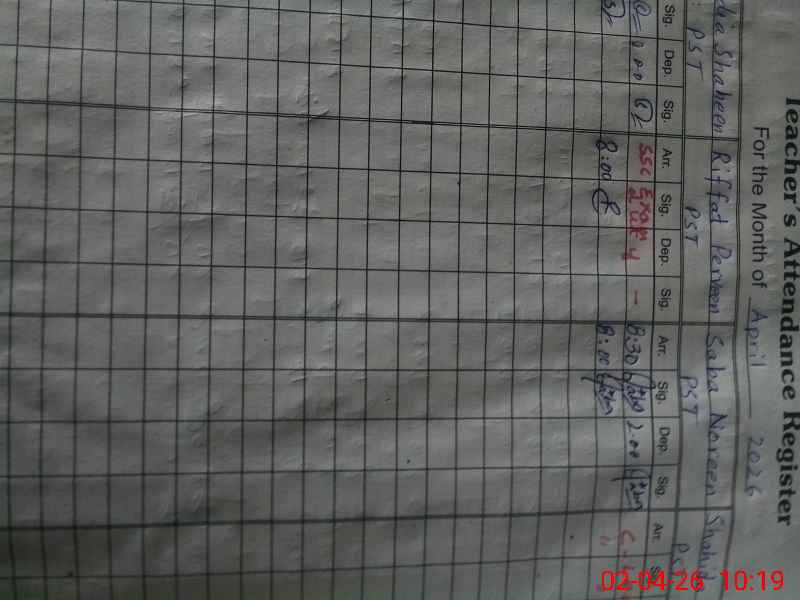 Teacher's Attendance Register
For the Month of April 2026
Shaheen Riffat Perveen Saba Noreen Shahid
PST PST PST PST
Sig. Dep. Sig. Arr. Sig. Dep. Sig. Arr. Sig. Dep. Sig. Arr.
SSC Exam
Duty - 8:30 2.00
8:00 8:00
02-04-26 10:19